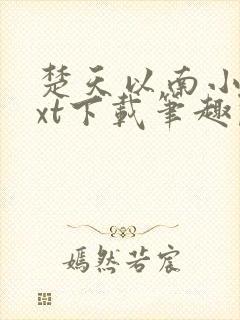 楚天以南小
xt下载笔趣
嫣然若宸